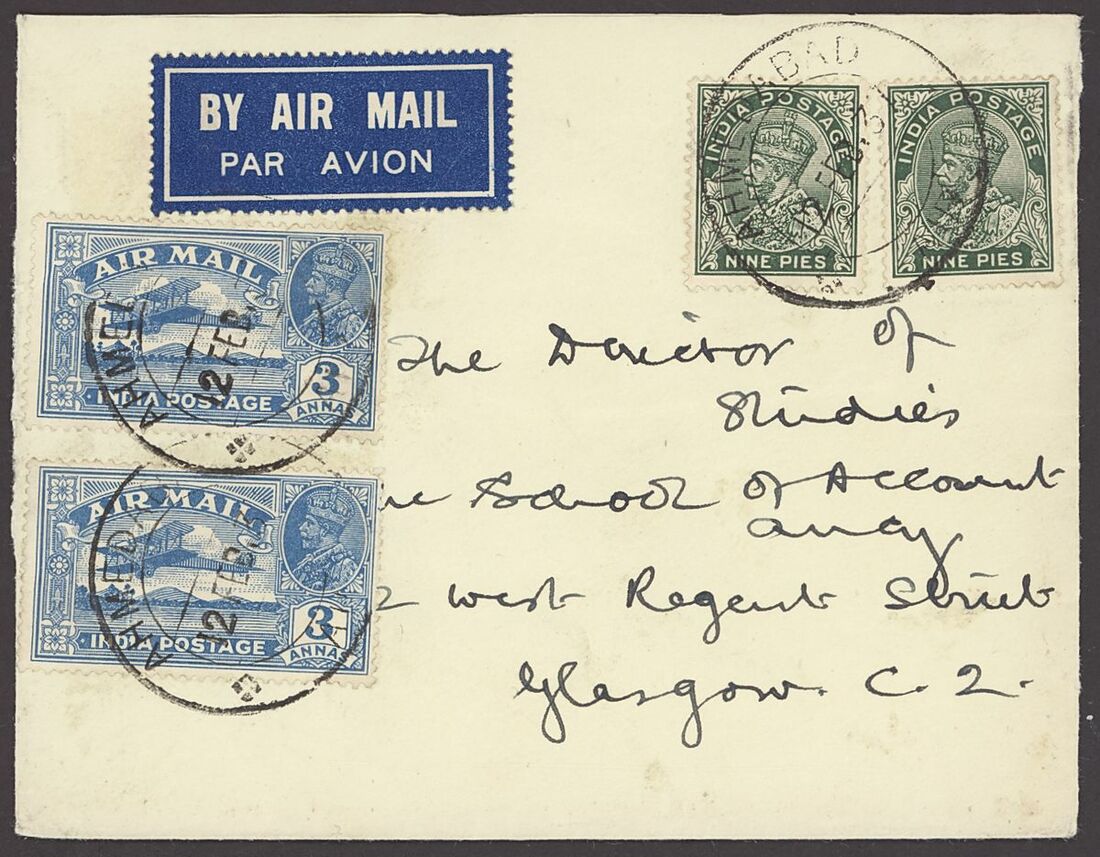 BY AIR MAIL
PAR AVION
INDIA POSTAGE
NINE PIES
INDIA POSTAGE
NINE PIES
AIR MAIL
3
ANNAS
INDIA POSTAGE
12 FEB
AIR MAIL
3
ANNAS
INDIA POSTAGE
12 FEB
The Director of
Studies
School of Account
ancy
2 West Regent Street
Glasgow. C. 2.